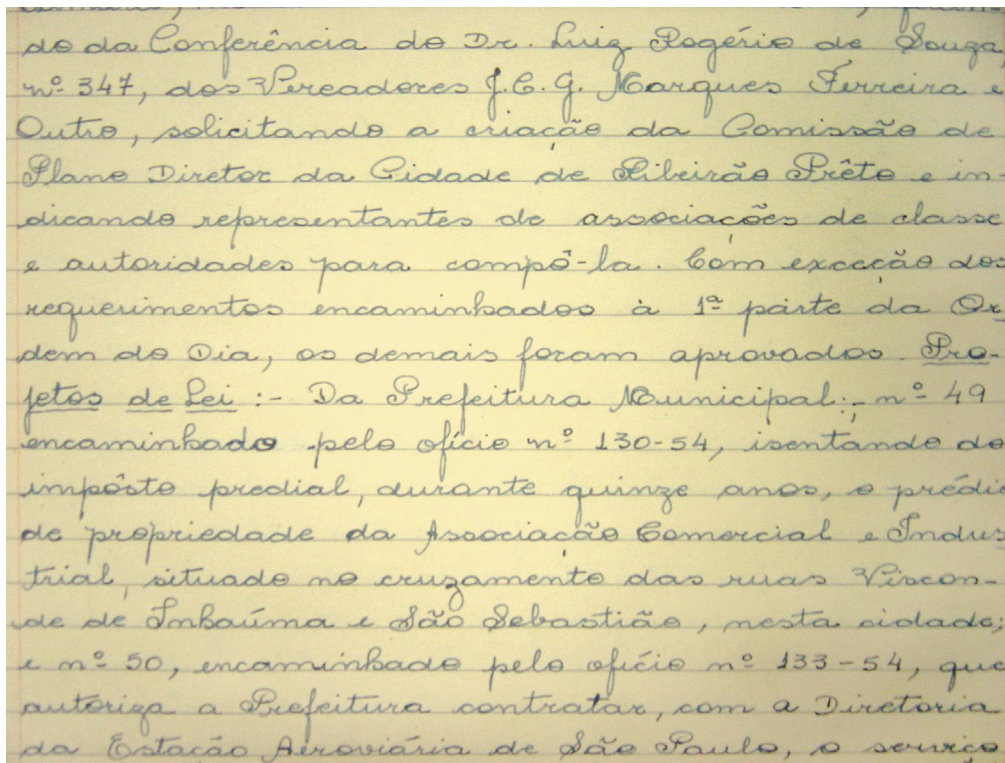 do da Conferência do Dr. Luiz Rogério de Souza,
nº 347, dos Vereadores J. C. G. Marques Ferreira e
Outro, solicitando a criação da Comissão de
Plano Diretor da Cidade de Ribeirão Prêto e in-
dicando representantes de associações de classe
e autoridades para compô-la. Com exceção dos
requerimentos encaminhados à 1ª parte da Or
dem do Dia, os demais foram aprovados. Pro-
jetos de Lei :- Da Prefeitura Municipal:- nº 49
encaminhado pelo ofício nº 130-54, isentando do
impôsto predial, durante quinze anos, o prédio
de propriedade da Associação Comercial e Indus
trial, situado no cruzamento das ruas Viscon-
de de Inhaúma e São Sebastião, nesta cidade;
e nº 50, encaminhado pelo ofício nº 133-54, que
autoriza a Prefeitura contratar, com a Diretoria
da Estação Aeroviária de São Paulo, o serviço